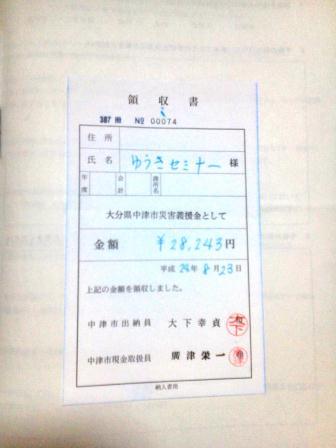 領収書
387冊 № 00074
住所
氏名 ゆうきセミナー 様
年度 会計
大分県中津市災害義援金として
金額 ¥28,243円
平成 24年 8月 23日
上記の金額を領収しました。
中津市出納員 大下幸貞
中津市現金取扱員 廣津栄一
納入者用